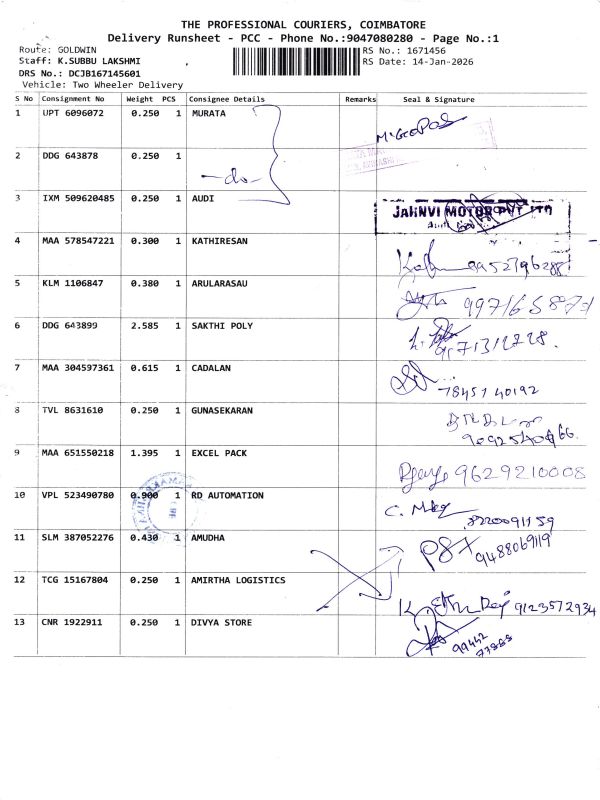 THE PROFESSIONAL COURIERS, COIMBATORE
Delivery Runsheet - PCC - Phone No.:9047080280 - Page No.:1
Route: GOLDWIN
RS No.: 1671456
Staff: K.SUBBU LAKSHMI
RS Date: 14-Jan-2026
DRS No.: DCJB167145601
Vehicle: Two Wheeler Delivery
S No Consignment No Weight PCS Consignee Details Remarks Seal & Signature
1 UPT 6096072 0.250 1 MURATA
2 DDG 643878 0.250 1 -do-
3 IXM 509620485 0.250 1 AUDI JAHNVI MOTOR PVT LTD
4 MAA 578547221 0.300 1 KATHIRESAN
5 KLM 1106847 0.380 1 ARULARASAU
6 DDG 643899 2.585 1 SAKTHI POLY
7 MAA 304597361 0.615 1 CADALAN 78451 40192
8 TVL 8631610 0.250 1 GUNASEKARAN
9 MAA 651550218 1.395 1 EXCEL PACK 9629210008
10 VPL 523490780 0.900 1 RD AUTOMATION 8220091159
11 SLM 387052276 0.430 1 AMUDHA 9488069119
12 TCG 15167804 0.250 1 AMIRTHA LOGISTICS 9123572934
13 CNR 1922911 0.250 1 DIVYA STORE